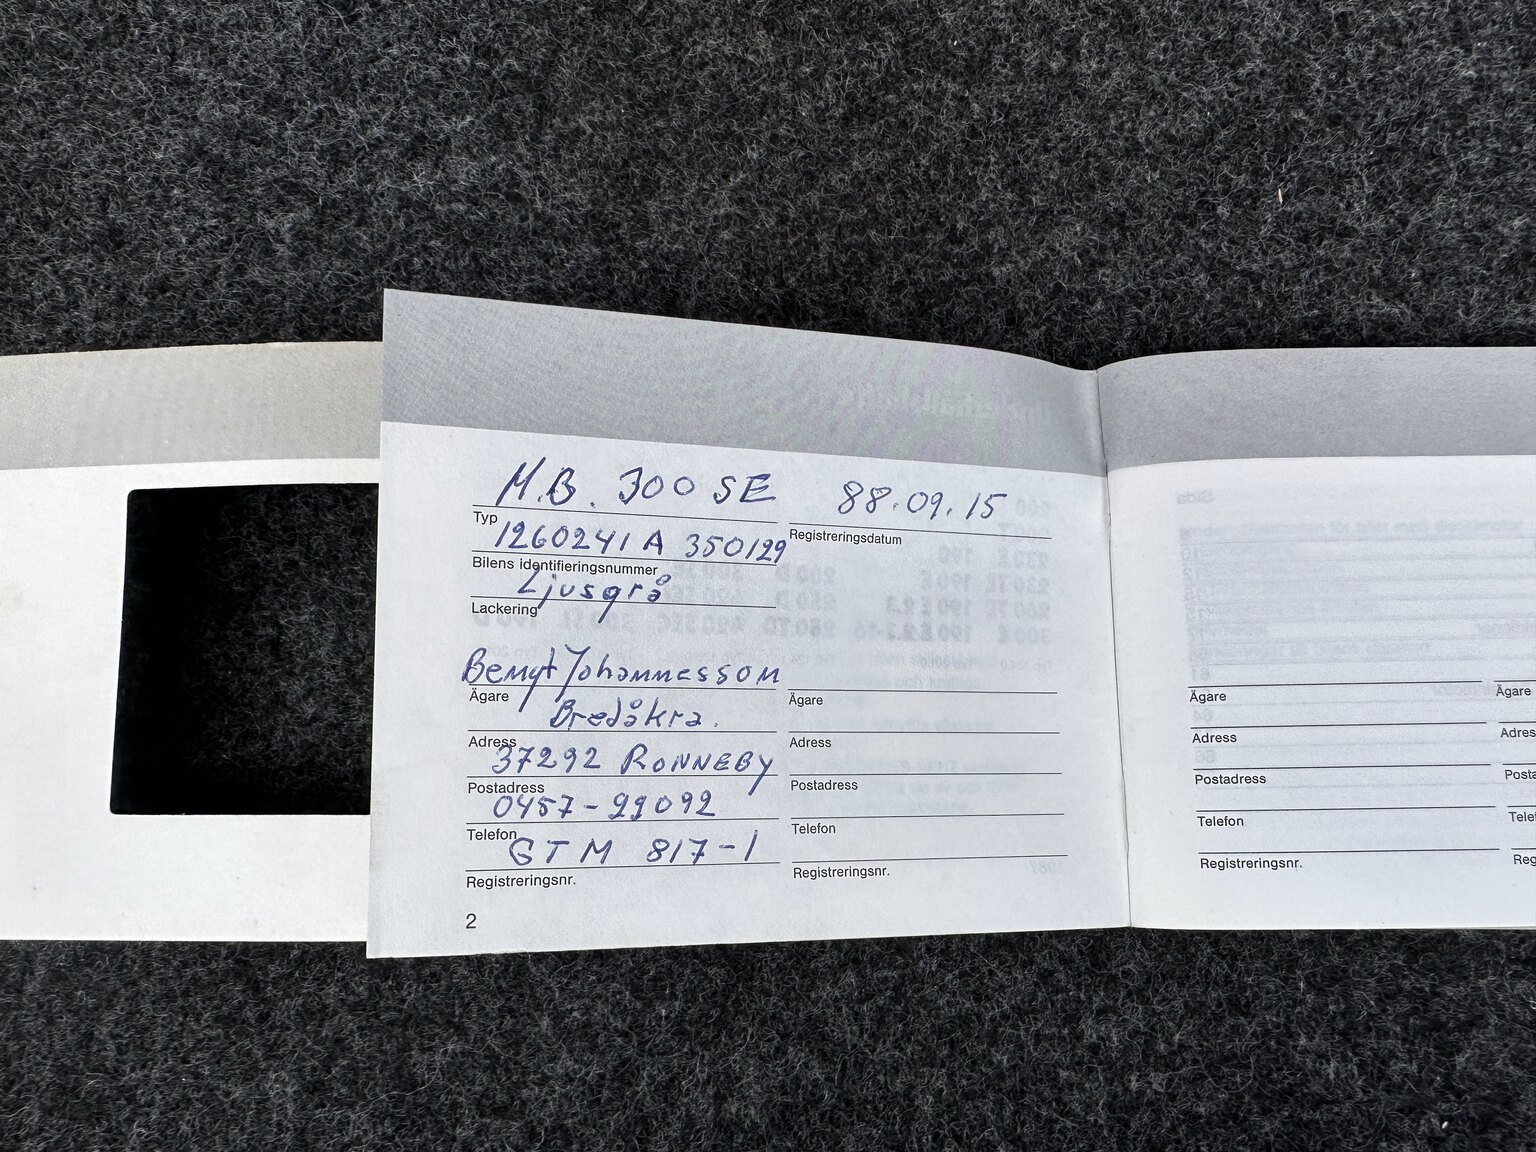 M.B. 300 SE
88.09.15
Typ
Registreringsdatum
1260241 A 350129
Bilens identifieringsnummer
Ljusgrå
Lackering
Bengt Johannesson
Ägare
Ägare
Ägare
Ägare
Bredåkra.
Adress
Adress
Adress
37292 RONNEBY
Postadress
Postadress
Postadress
0457-99092
Telefon
Telefon
Telefon
GTM 817-1
Registreringsnr.
Registreringsnr.
Registreringsnr.
2